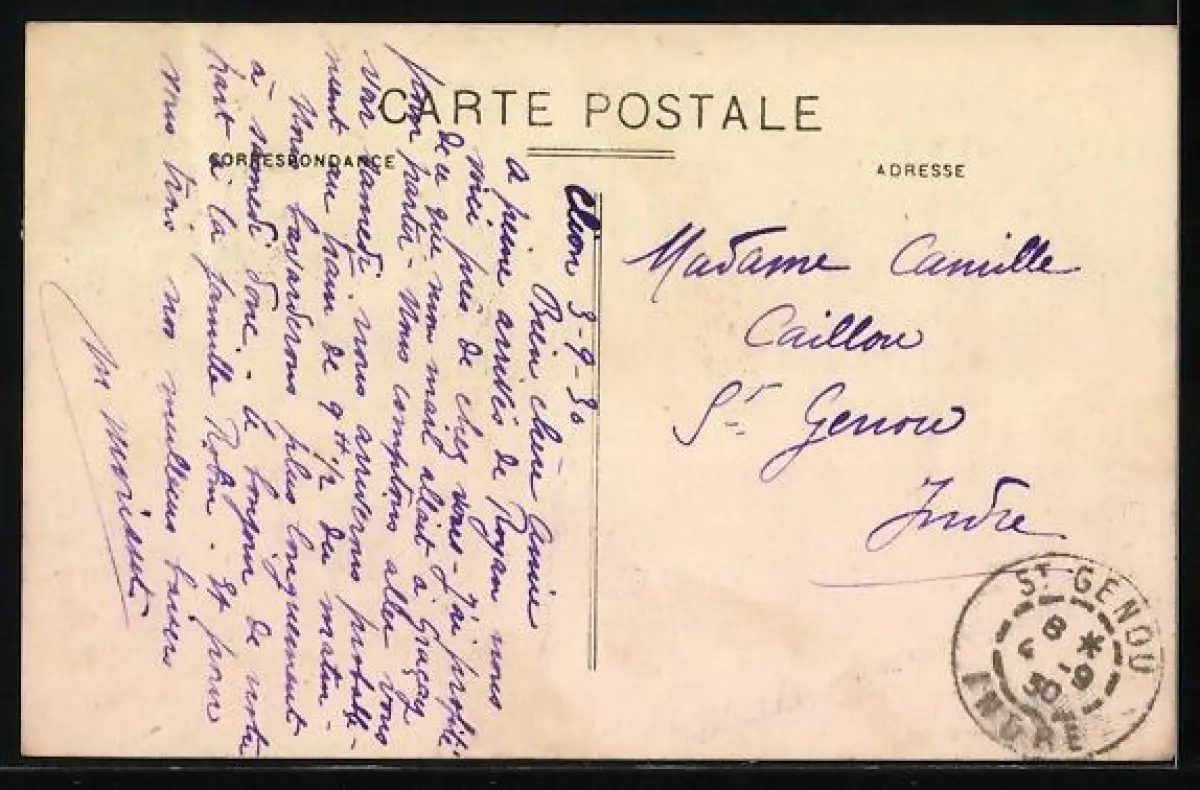 CARTE POSTALE
CORRESPONDANCE
ADRESSE
Clion 3-9-30
Bien chère Amie
A peine arrivés de Royan nous
voici près de chez vous - J'ai profité
de ce que mon mari allait à Graçay
pour partir - Nous comptons aller vous
voir samedi nous arriverons probable-
ment au train de 9H 1/2 du matin -
Nous bavarderons plus longuement
à samedi donc. - Le bonjour de notre
part à la famille Robin. Et pour
vous trois nos meilleurs baisers
M
Madame Camille
Caillou
St Genou
Indre
ST GENOU
8 *
-9
30
INDRE